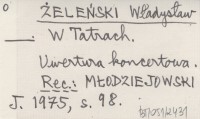 o ŻELEŃSKI Władysław
—. W Tatrach.
Uwertura koncertowa.
Rec.: MŁODZIEJOWSKI
J. 1975, s. 98.